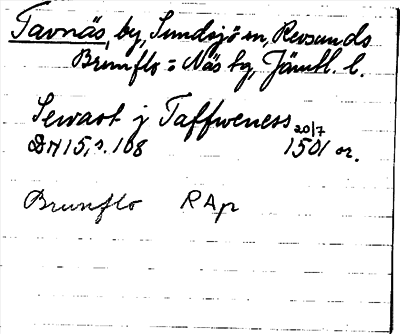 Tavnäs, by, Sundsjö sn, Revsunds
Brunflo o Näs tg, Jämtl. l.
Sewast j Taffweness 20/7
DN 15, s. 108 1501 or.
Brunflo RAp